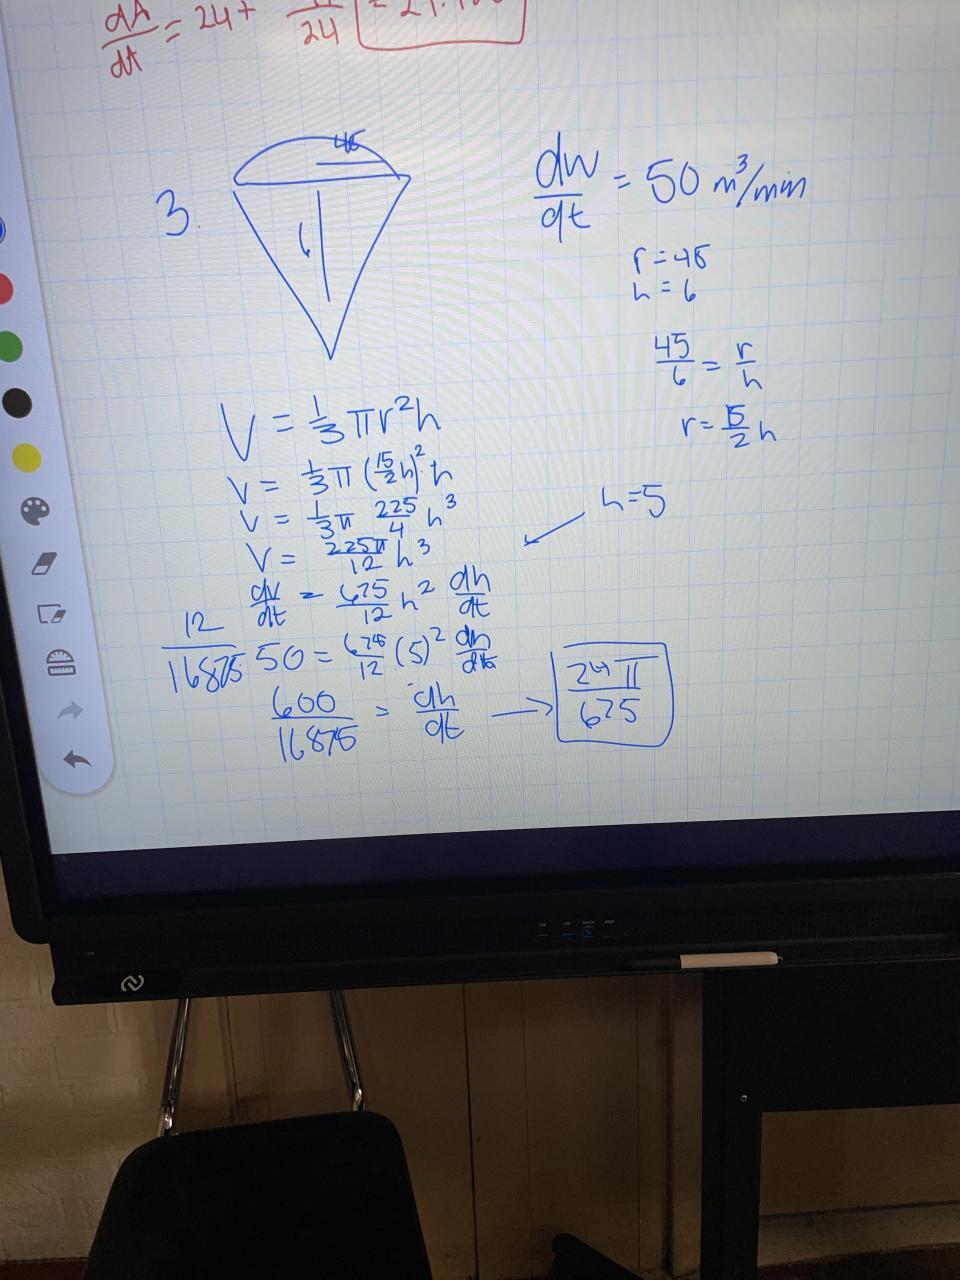 dA/dt = 24 +
24
3.
45
6
dw/dt = 50 m³/min
r = 45
h = 6
45/6 = r/h
r = 15/2 h
V = 1/3 πr²h
V = 1/3 π (15/2 h)² · h
V = 1/3 π 225/4 h³
h = 5
V = 225π/12 h³
dv/dt = 675/12 h² dh/dt
12/16875 50 = 675/12 (5)² dh/dt
600/16875 = dh/dt → 24π/675